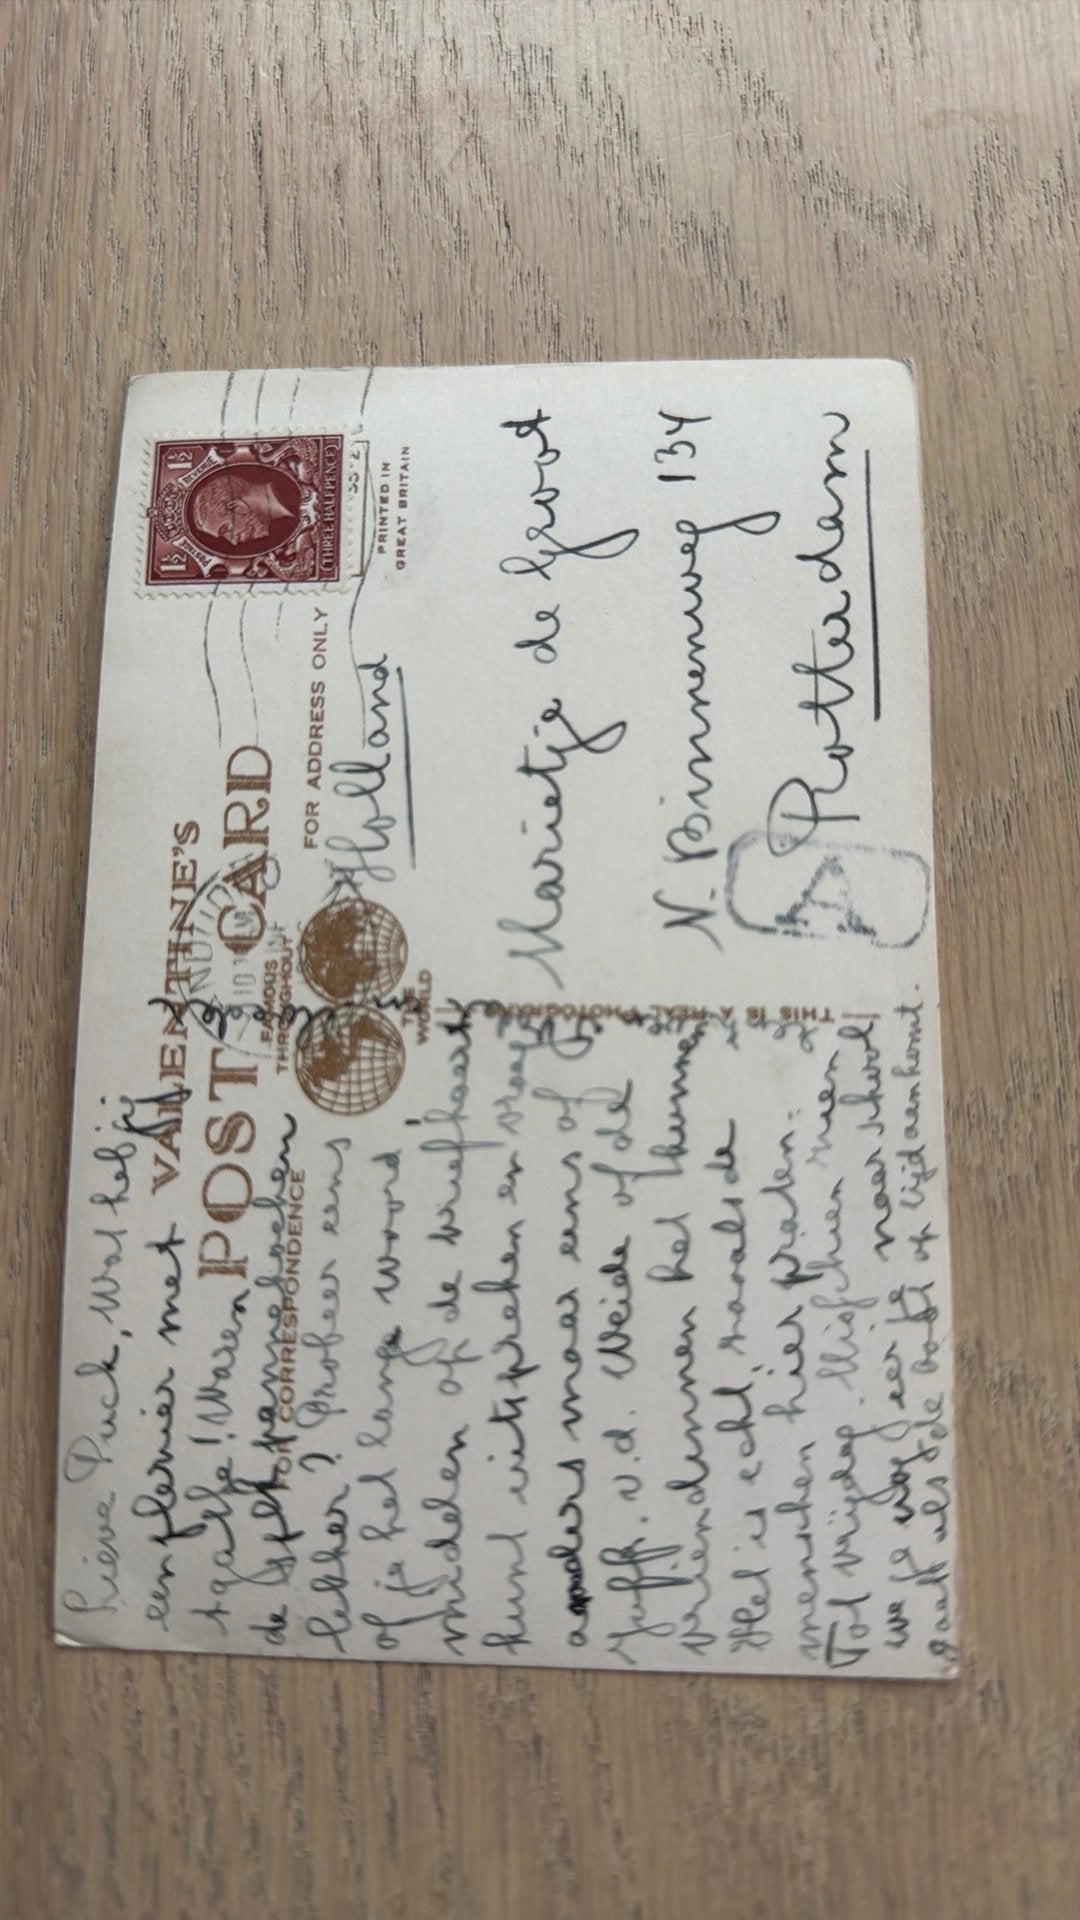 VALENTINE'S
POST CARD
FAMOUS THROUGHOUT
THE WORLD
FOR CORRESPONDENCE
FOR ADDRESS ONLY
PRINTED IN
GREAT BRITAIN
POSTAGE REVENUE
1½ 1½
THREE HALFPENCE
THIS IS A REAL PHOTOGRAPH
Lieve Puck, Wat heb jij
een plezier met
Agathe! Waren
de pannekoeken
lekker? Probeer eens
of je het lange woord
midden op de briefkaart
kunt uitspreken en vraag
anders maar eens of
Juffr. v.d. Weide of de
vriendinnen het kunnen
Het is echt zooals de
menschen hier praten.
Tot vrijdag. Misschien zien
we je nog eer je naar school
gaat als de boot op tijd aankomt.
Holland
Marietje de Groot
N. Binnenweg 134
Rotterdam
A